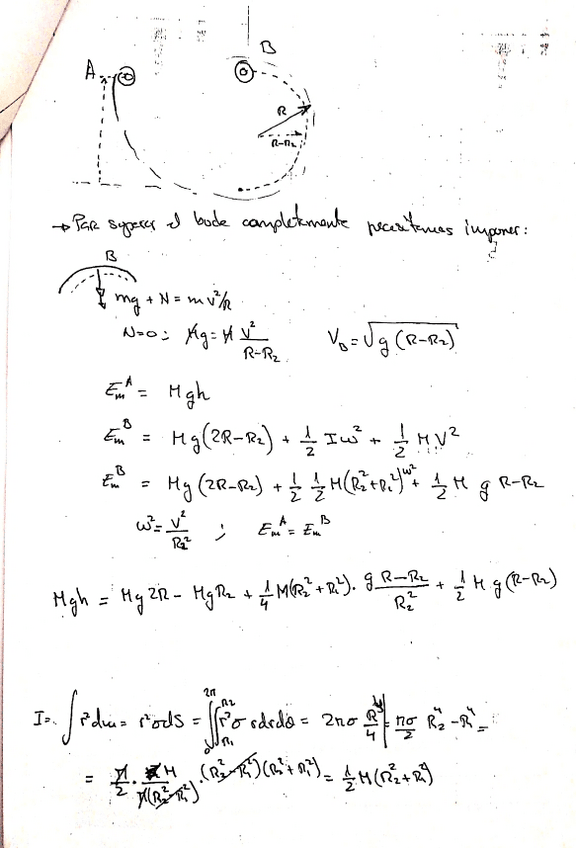 A
B
R
R-R₂
→ Para superar el bucle completamente necesitamos imponer:
B
mg + N = m v²/R
N=0: Mg = M V²/(R-R₂)   V_B = √(g (R-R₂))
E_m^A = Mgh
E_m^B = Mg(2R-R₂) + 1/2 Iω² + 1/2 M V²
E_m^B = Mg(2R-R₂) + 1/2 1/2 M(R₂²+R₁²)ω² + 1/2 M g R-R₂
ω² = V²/R₂² ; E_m^A = E_m^B
Mgh = Mg 2R - MgR₂ + 1/4 M(R₂²+R₁²) · g R-R₂/R₂² + 1/2 M g(R-R₂)
I = ∫ r² dm = r²σdS = ∫₀^2π ∫_R₁^R₂ r²σ r dr dθ = 2πσ R⁴/4 | = πσ/2 R₂⁴-R₁⁴ =
= π/2 · M/π(R₂²-R₁²) · (R₂²-R₁²)(R₂²+R₁²) = 1/2 M(R₂²+R₁²)